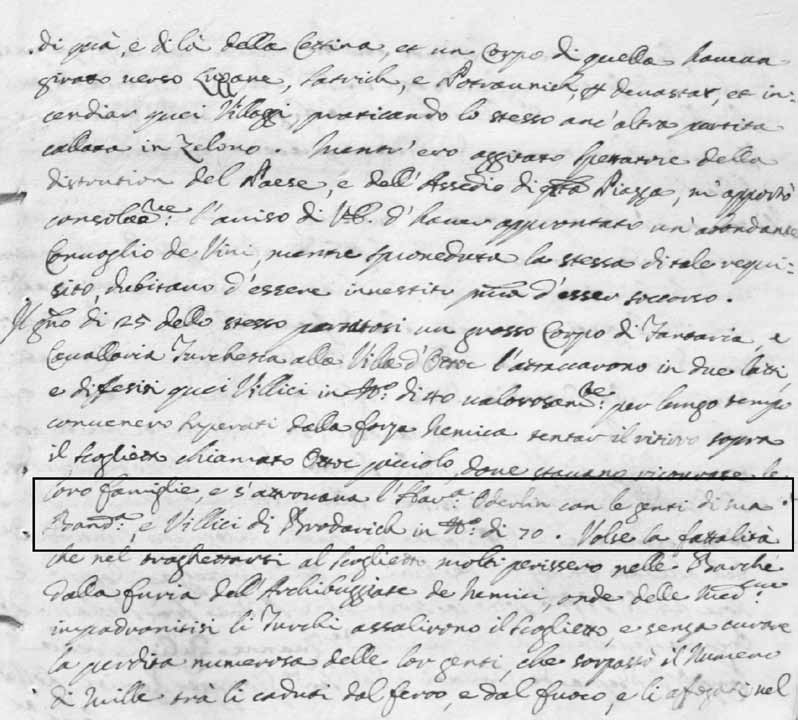 di quà, e di là della Cettina, et un Corpo di quella havean
girato verso Lugane, Satrich, e Potraunich, et devastar, et in-
cendiar quei Villaggi, praticando lo stesso anc'altra partita
callata in Zelono. Mentr'ero aggitato spettatore della
distrution del Paese, e dell'Assedio di Piazza, m'apportò
l'aviso di d'haver approntato un'abondante
Convoglio de Vini, mentre sproveduta la stessa di tale requi-
sito, dubitavo d'essere investito d'esser soccorso.
Il di 25 dello stesso portatosi un grosso Corpo di Fantaria, e
Cavallaria Turchesca alla Villa d'Ottoc l'attaccarono in due lati,
e difesisi quei Villici in N.º di 40 valorosam.te per lungo tempo
convenero superati dalla forza nemica tentar il ritiro sopra
il Scoglietto chiamato Ottoc picciolo, dove stavano ricovrate le
loro famiglie, e s'attrovava l'Harā. Oderlin con le genti di sua
Band.ª, e Villici di Brodarich in N.º di 70. Volse la fattalità
che nel traghettarsi al Scoglietto molti perissero nelle Barche
dalla furia dell'Archibuggiate de nemici, onde delle
impadronitisi li Turchi assalirono il Scoglietto, e senza curare
la perdita numerosa delle lor genti, che sorpassò il Numero
di Mille tra li caduti dal ferro, e dal fuoco, e li afogati nel